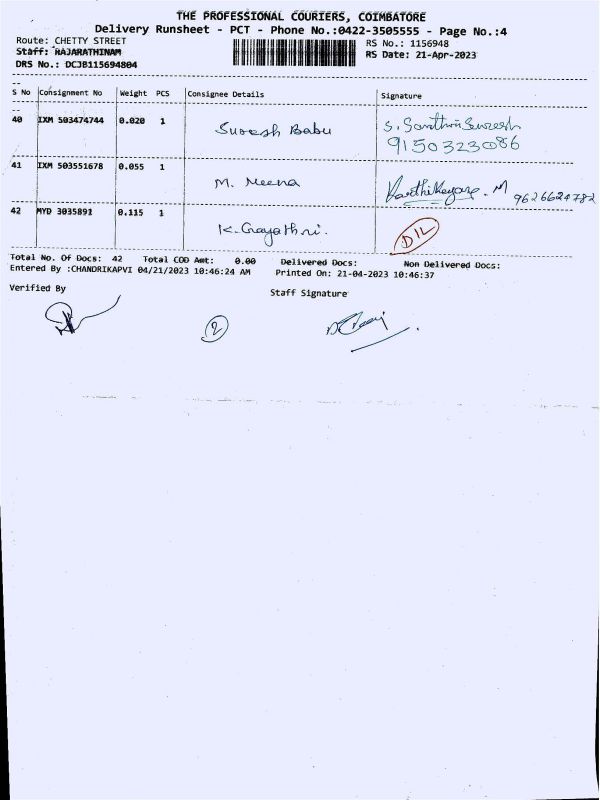 THE PROFESSIONAL COURIERS, COIMBATORE
Delivery Runsheet - PCT - Phone No.:0422-3505555 - Page No.:4
Route: CHETTY STREET
RS No.: 1156948
Staff: RAJARATHINAM
RS Date: 21-Apr-2023
DRS No.: DCJB115694804
S No Consignment No Weight PCS Consignee Details Signature
40 IXM 503474744 0.020 1 Suresh Babu S. Santhni Suresh
9150323086
41 IXM 503551678 0.055 1 M. Meena Karthikeyan. M 9626624782
42 MYD 3035891 0.115 1 K. Gayathri. D/L
Total No. Of Docs: 42 Total COD Amt: 0.00 Delivered Docs: Non Delivered Docs:
Entered By :CHANDRIKAPVI 04/21/2023 10:46:24 AM Printed On: 21-04-2023 10:46:37
Verified By
Staff Signature
2